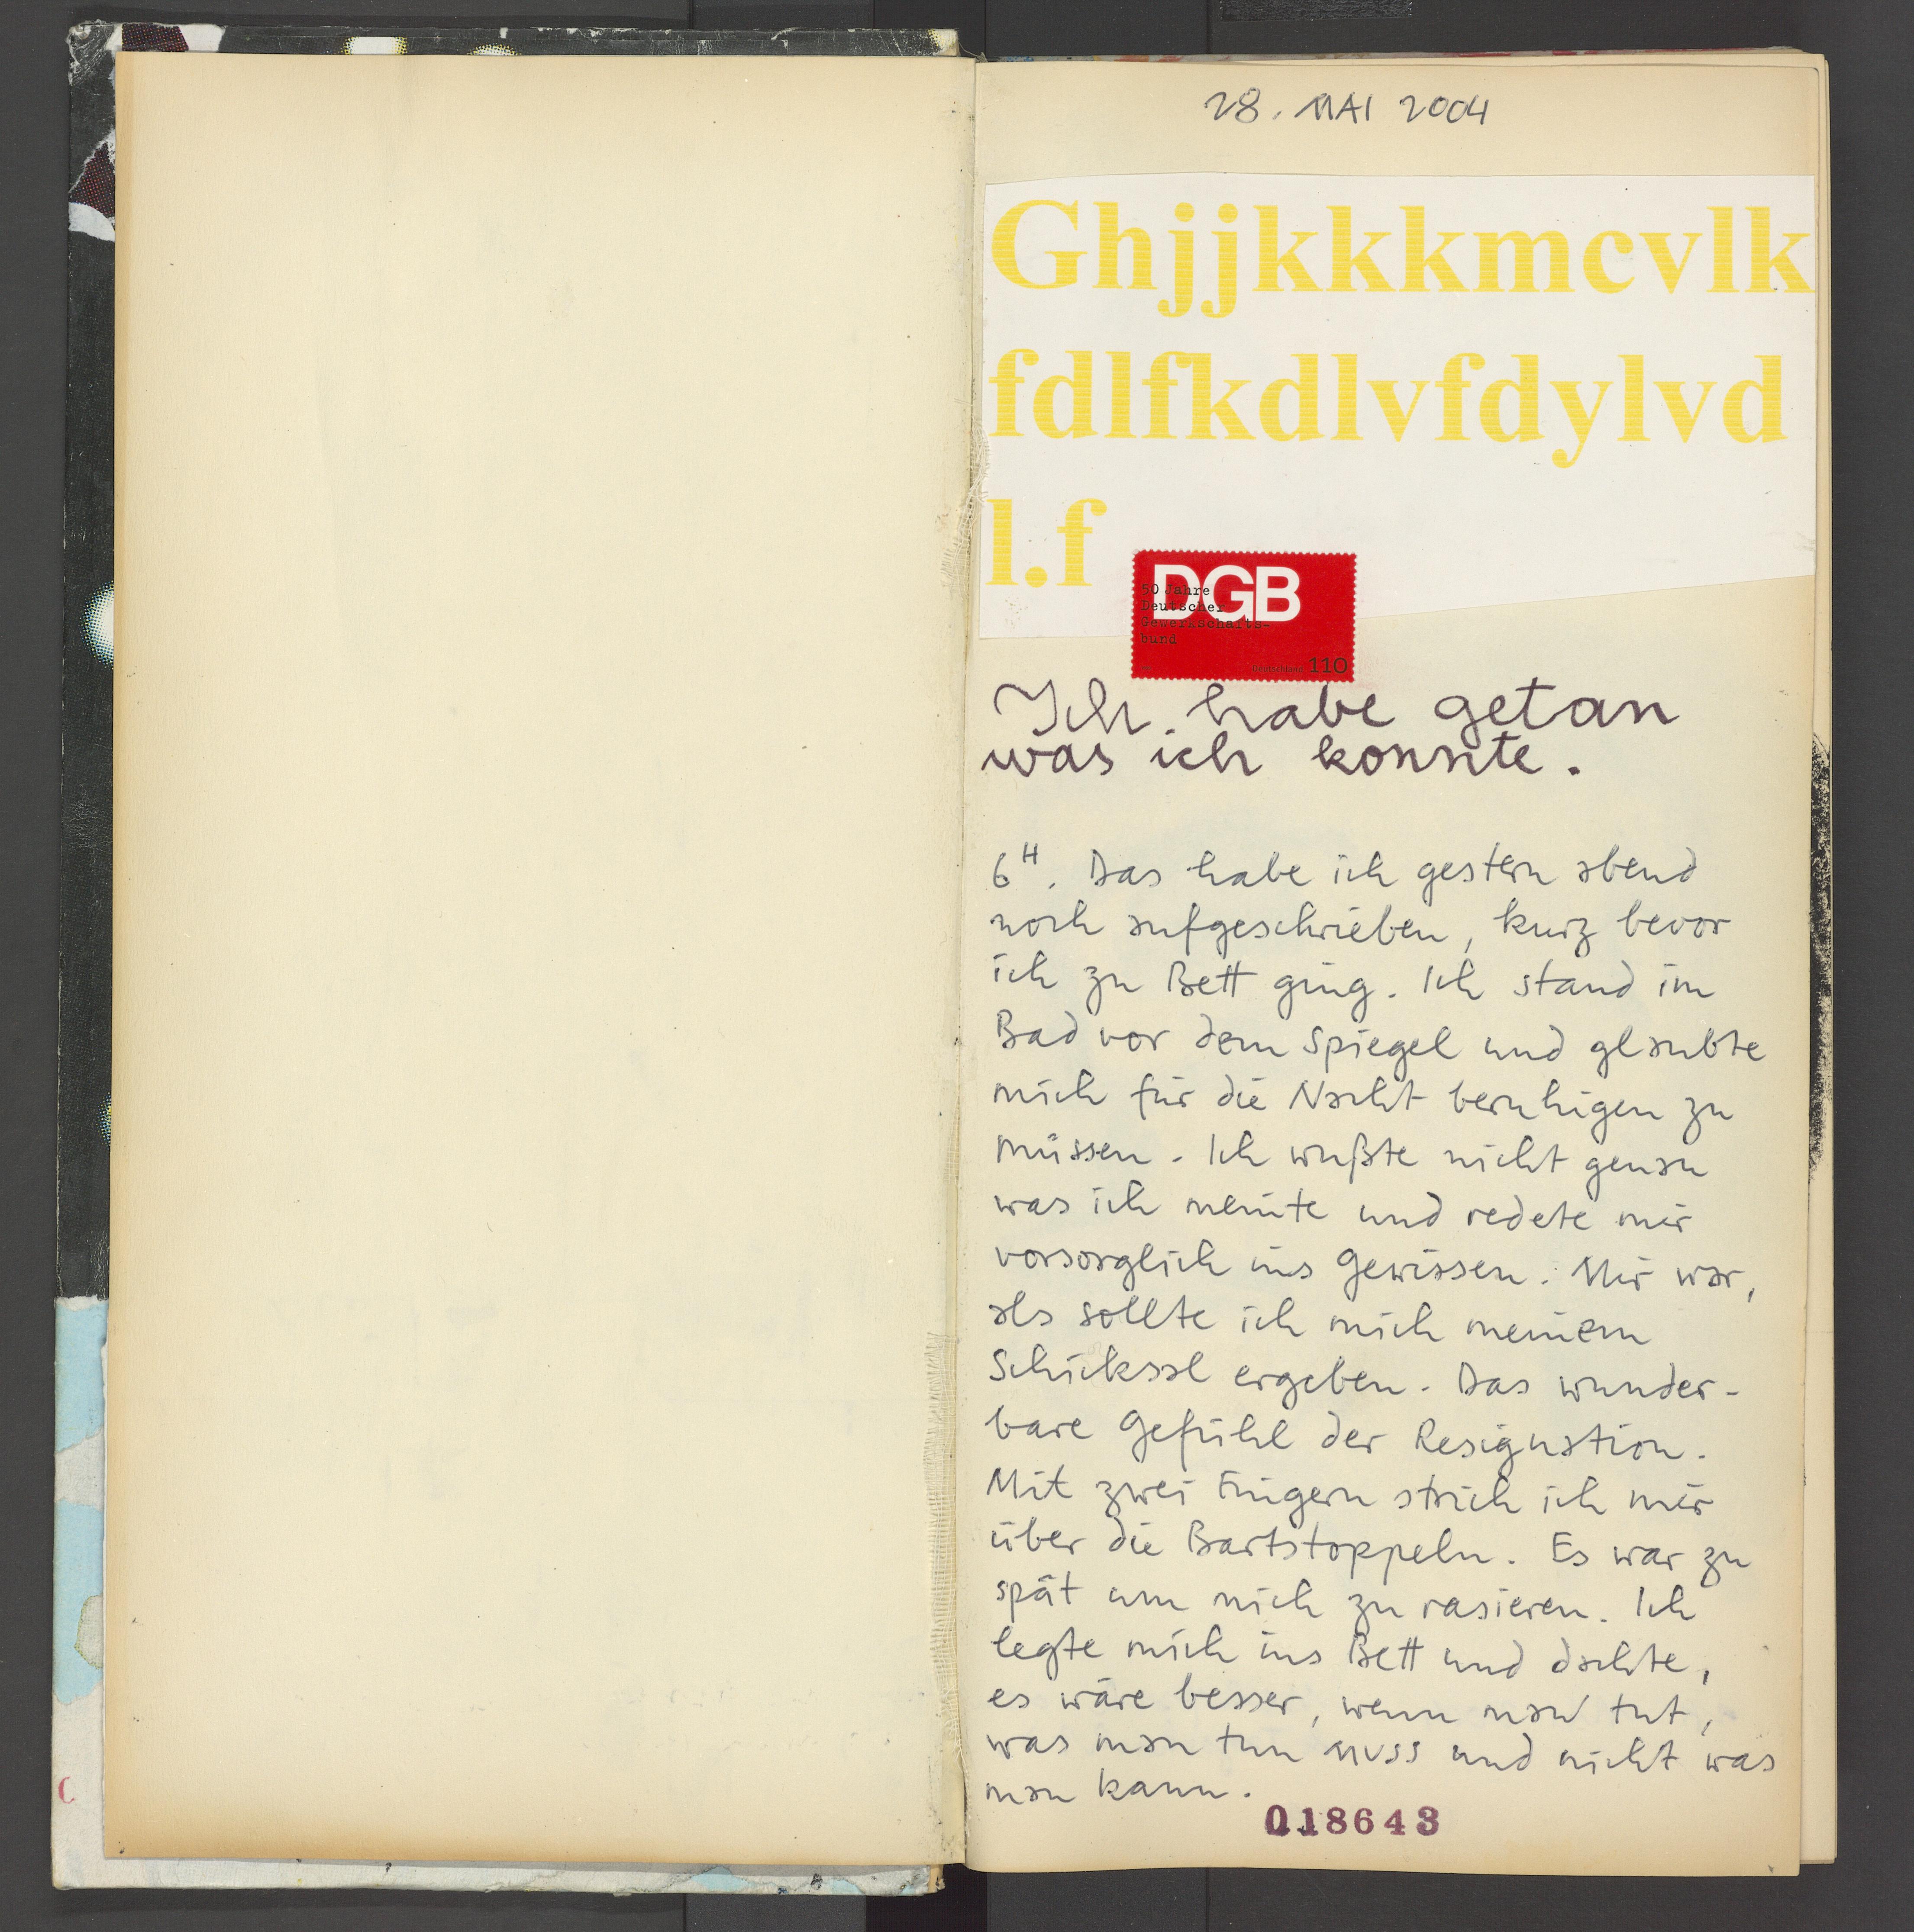 28. MAI 2004
Ghjjkkkmcvlk
fdlfkdlvfdylvd
l.f
DGB
50 Jahre
Deutscher
Gewerkschafts-
bund
Deutschland 110
Ich habe getan
was ich konnte.
6H. Das habe ich gestern abend
noch aufgeschrieben, kurz bevor
ich zu Bett ging. Ich stand im
Bad vor dem Spiegel und glaubte
mich für die Nacht beruhigen zu
müssen. Ich wußte nicht genau
was ich meinte und redete mir
vorsorglich ins Gewissen. Mir war,
als sollte ich mich meinem
Schicksal ergeben. Das wunder-
bare Gefühl der Resignation.
Mit zwei Fingern strich ich mir
über die Bartstoppeln. Es war zu
spät um mich zu rasieren. Ich
legte mich ins Bett und dachte,
es wäre besser, wenn man tut,
was man tun MUSS und nicht was
man kann.
018643